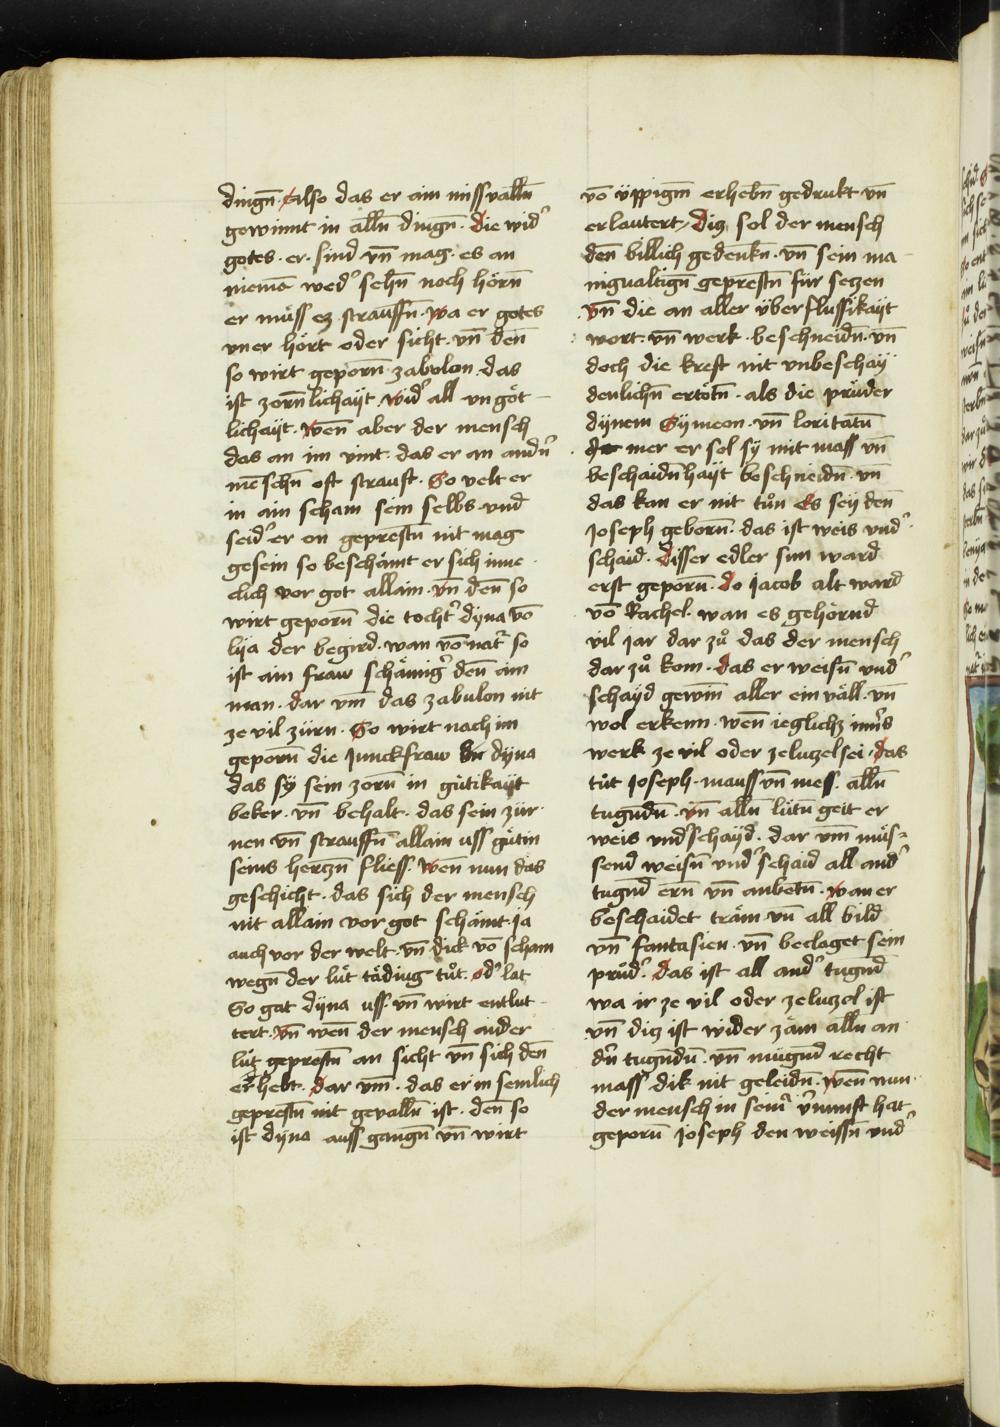 dingn̄. Also das er ain missvalln̄
gewinnt in alln̄ dingn̄. Die wid᾽
gotes. er. sind vn̄ mag. es an
niema᷑ wed᾽ sehn̄ noch hörn̄
er müss ez straussn̄. wa er gotes
vner hört oder sicht. vn̄ den̄
so wirt geporn̄ zabulon. das
ist zorn̄lichayt. wid᾽ all vngöt-
lichayt. wen̄ aber der mensch
das an im vint. das er an andn̄᾽
me᷑schn̄ oft strauft. So velt er
in ain scham sein selbs. vnd
seid᾽ er on geprestn̄ nit mag
gesein so beschämt er sich inne
clich vor got allain. vn̄ den̄ so
wirt geporn̄ die tocht᾽ dyna vō
lya der begird. wan vō nat᾽ so
ist ain fraw schämig᾽ den̄ ain
man. dar vm̄ das zabulon nit
ze vil zürn. So wirt nach im
geporn̄ die junckfraw dyna
das sy sein zorn̄ in gütikayt
beker. vn̄ behalt. das sein zür
nen vn̄ straussn̄ allain uss gütin
seins hertzn̄ fliess. wen̄ nun das
geschicht. das sich der mensch
nit allain vor got schämt. ja
auch vor der welt. vn̄ dick vō scham
wegn̄ der lüt täding tůt. od᾽ lat
So gat dyna uss. vn̄ wirt entlut-
tert. vn̄ wen̄ der mensch ander
lüt geprestn̄ an sicht vn̄ sich den̄
erhebt. dar vm̄. das er in semlich
geprestn̄ nit gevalln̄ ist. den̄ so
ist dyna auss gangn̄ vn̄ wirt
vō üppigm erhebn̄ gedrukt vn̄
erlautert, Diz sol der mensch
den̄ billich gedenkn̄. vn̄ sein ma-
nigualtign̄ geprestn̄ für setzen
vn̄ die an aller überflussikayt
wort. vn̄ werk. beschneidn̄. vn̄
doch die kreft nit vnbeschay
denlichn̄ ertötn̄. als die prüder
dynem Symeon. vn̄ loritatū
mer er sol sy mit mass vn̄
beschaidn̄hayt beschneidn̄. vn̄
das kan er nit tůn Es sey den̄
Joseph geborn̄. das ist weis vnd᾽
schaid. Disser edler sun ward
erst geporn̄. do jacob alt ward
vō Rachel. wan es gehörnd
vil jar dar zů das der mensch
dar zů kom. das er weisn̄ vnd᾽
schayd gewin̄ aller ein väll. vn̄
wol erkenn. wen̄ ieglichz in̄rs
werk ze vil oder ze lutzel sei. das
tůt Joseph. mauss vn̄ mess. alln̄
tugndn̄. vn̄ alln̄ lütn̄ geit er
weis vnd᾽schayd. dar vm̄ müs-
send weisn̄ vnd᾽schaid all and᾽
tugnd̄ ern̄ vn̄ anbetn̄. wan er
beschaidet träm vn̄ all bild
vn̄ fantasien. vn̄ beclaget sein
prüd᾽. das ist all and᾽ tugnd̄
wa ir ze vil oder ze lutzel ist
vn̄ diz ist wider zäm alln̄ an
dn̄᾽ tugndn̄. vn̄ mügnd̄ recht
mass dik nit geleidn̄. wen̄ nun
der mensch in seinr᾽ v᾽nunft hat
geporn̄ joseph den weissn̄ vnd᾽